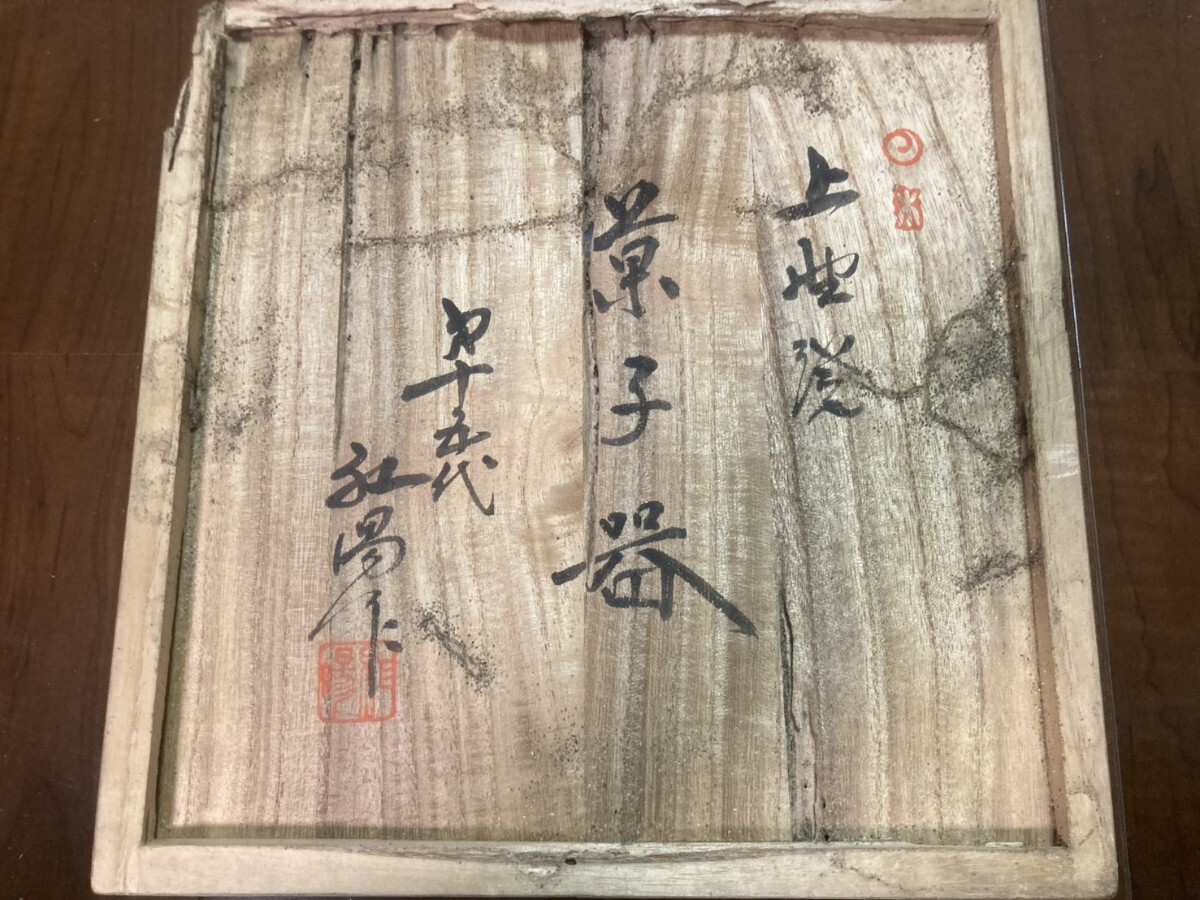 上野焼
菓子器
第十五代
紅陽作